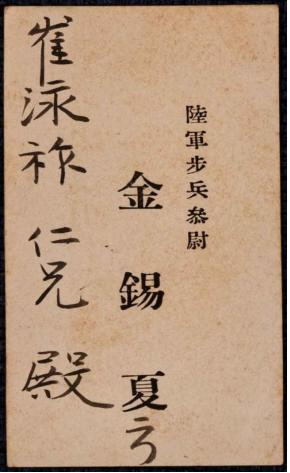 陸軍步兵參尉
金錫夏
崔泳祚仁兄 殿